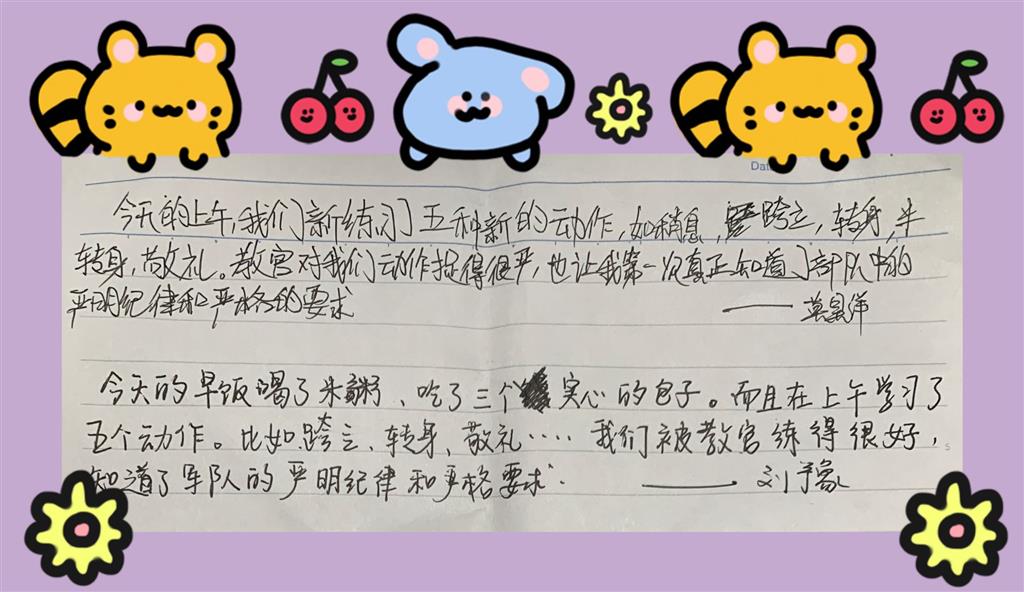 Dat
今天的上午,我们新练习了五种新的动作,如稍息,跨立,转身,半
转身,敬礼。教官对我们动作捉得很严,也让我第一次真正知道了部队中的
严明纪律和严格的要求
—— 莫洋
今天的早饭喝了米粥、吃了三个实心的包子。而且在上午学习了
五个动作。比如跨立、转身、敬礼····我们被教官练得很好,
知道了军队的严明纪律和严格要求.
—— 刘予豪